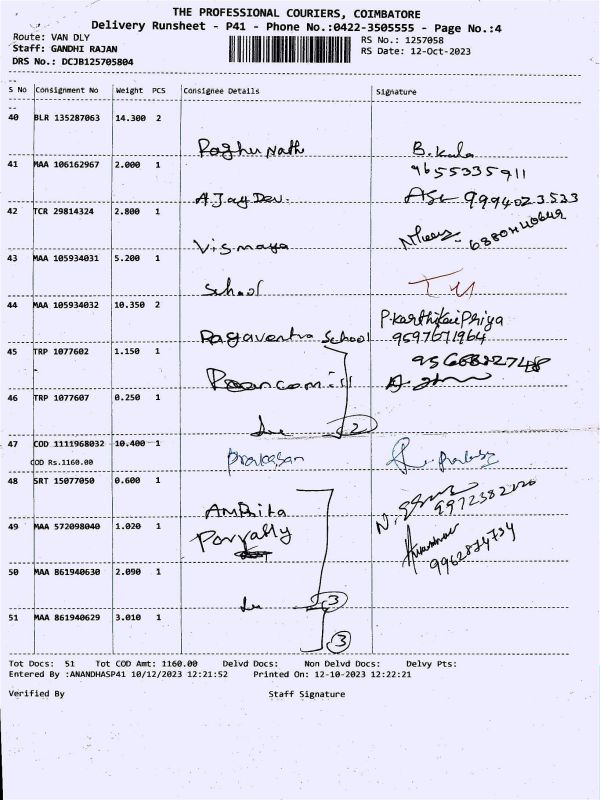 THE PROFESSIONAL COURIERS, COIMBATORE
Delivery Runsheet - P41 - Phone No.:0422-3505555 - Page No.:4
Route: VAN DLY RS No.: 1257058
Staff: GANDHI RAJAN RS Date: 12-Oct-2023
DRS No.: DCJB125705804
S No Consignment No Weight PCS Consignee Details Signature
40 BLR 135287063 14.300 2
Raghu Nath B. Kala
9655335911
41 MAA 106162967 2.000 1
AJay Dev. 9994023533
42 TCR 29814324 2.800 1
Vismaya
43 MAA 105934031 5.200 1
School
44 MAA 105934032 10.350 2
P.Karthikai Priya
Ragavendra School 9597671964
45 TRP 1077602 1.150 1
46 TRP 1077607 0.250 1
2
47 COD 1111968032 10.400 1
COD Rs.1160.00 Prakasan
48 SRT 15077050 0.600 1
Amrita
49 MAA 572098040 1.020 1
9962874734
50 MAA 861940630 2.090 1
3
51 MAA 861940629 3.010 1
3
Tot Docs: 51 Tot COD Amt: 1160.00 Delvd Docs: Non Delvd Docs: Delvy Pts:
Entered By :ANANDHASP41 10/12/2023 12:21:52 Printed On: 12-10-2023 12:22:21
Verified By Staff Signature